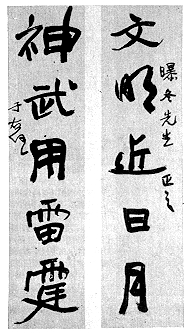 曝冬先生 正之
文明近日月
神武用雷霆
于右任